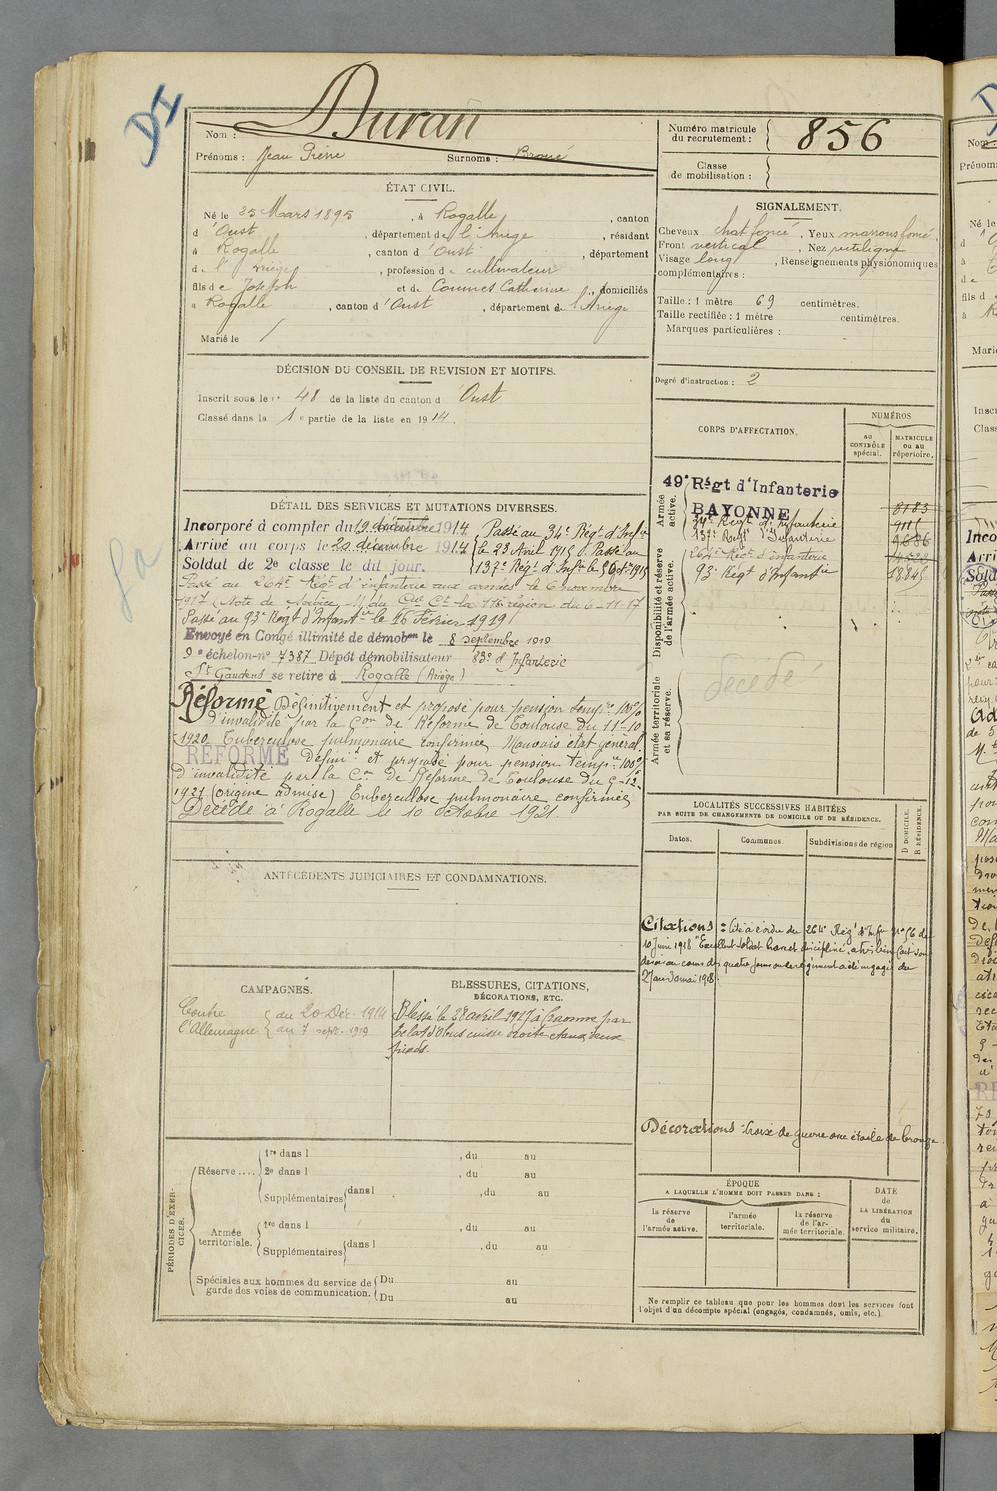 DI
Nom : Duran
Prénoms : Jean Pierre Surnoms : Broué
Numéro matricule du recrutement : 856
Classe de mobilisation :
ÉTAT CIVIL.
Né le 25 Mars 1895, à Rogalle, canton
d'Oust, département de l'Ariège, résidant
à Rogalle, canton d'Oust, département
de l'Ariège, profession de cultivateur
fils de Joseph et de Coumes Catherine, domiciliés
à Rogalle, canton d'Oust, département de l'Ariège
Marié le /
SIGNALEMENT.
Cheveux chat foncé, Yeux marrons foncé,
Front vertical, Nez rectiligne
Visage long, Renseignements physionomiques
complémentaires :
Taille : 1 mètre 69 centimètres.
Taille rectifiée : 1 mètre centimètres.
Marques particulières :
Degré d'instruction : 2
DÉCISION DU CONSEIL DE REVISION ET MOTIFS.
Inscrit sous le n° 48 de la liste du canton d'Oust
Classé dans la 1e partie de la liste en 1914.
DÉTAIL DES SERVICES ET MUTATIONS DIVERSES.
Incorporé à compter du 19 décembre 1914
Arrivé au corps le 20 décembre 1914
Soldat de 2e classe le dit jour.
Passé au 34e Régt d'Inf.ie
le 23 Avril 1915. Passé au
137e Régt d'Inf.ie le 5 Oct. 1915
Passé au 264e Régt d'infanterie aux armées le 6 novembre
1917 (Note de Service du Gal Ct la 11e région du 6-11-17
Passé au 93e Régt d'Infantie le 16 Février 1919
Envoyé en Congé illimité de démobon le 8 septembre 1919
9e échelon-n° 7387 Dépôt démobilisateur 83e d'Infanterie
St Gaudens se retire à Rogalle (Ariège)
Réformé Définitivement et proposé pour pension tempre 100%
d'invalidité par la Con de Réforme de Toulouse du 11-10
1920. Tuberculose pulmonaire confirmée. Mauvais état général.
RÉFORMÉ Définit. et proposé pour pension tempre 100%
d'invalidité par la Con de Réforme de Toulouse du 5-12-
1921 (origine admise) Tuberculose pulmonaire confirmée
Décédé à Rogalle le 10 octobre 1921.
CORPS D'AFFECTATION.
NUMÉROS
AU CONTRÔLE spécial.
MATRICULE ou au répertoire.
Armée active.
49e Régt d'Infanterie
BAYONNE 8183
34e Régt d'Infanterie 9111
137e Régt d'Infanterie 9686
Disponibilité et réserve de l'armée active.
264e Régt d'infanterie
93e Régt d'Infantie
Armée territoriale et sa réserve.
décédé
LOCALITÉS SUCCESSIVES HABITÉES
PAR SUITE DE CHANGEMENTS DE DOMICILE OU DE RÉSIDENCE.
Dates. Communes. Subdivisions de région
D DOMICILE.
R RÉSIDENCE.
ANTÉCÉDENTS JUDICIAIRES ET CONDAMNATIONS.
Citations : Cité à l'ordre du 264e Régt d'Infie n° 56 du
10 Juin 1918 "Excellent soldat brave et discipliné, a très bien fait son
devoir au cours des quatre jours ou le régiment a été engagé du
27 au 30 mai 1918.
CAMPAGNES.
Contre l'Allemagne
du 20 Déc. 1914
au 7 sept. 1919
BLESSURES, CITATIONS,
DÉCORATIONS, ETC.
Blessé le 28 avril 1917 à Craonne par
éclat d'obus cuisse droite et aux deux
pieds.
Décorations : Croix de guerre avec étoile de bronze.
PÉRIODES D'EXERCICES.
Réserve....
1re dans l , du au
2e dans l , du au
Supplémentaires dans l , du au
Armée territoriale.
1re dans l , du au
Supplémentaires dans l , du au
Spéciales aux hommes du service de garde des voies de communication.
Du au
Du au
ÉPOQUE
A LAQUELLE L'HOMME DOIT PASSER DANS :
la réserve de l'armée active.
l'armée territoriale.
la réserve de l'armée territoriale.
DATE de LA LIBÉRATION du service militaire.
Ne remplir ce tableau que pour les hommes dont les services font
l'objet d'un décompte spécial (engagés, condamnés, omis, etc.).